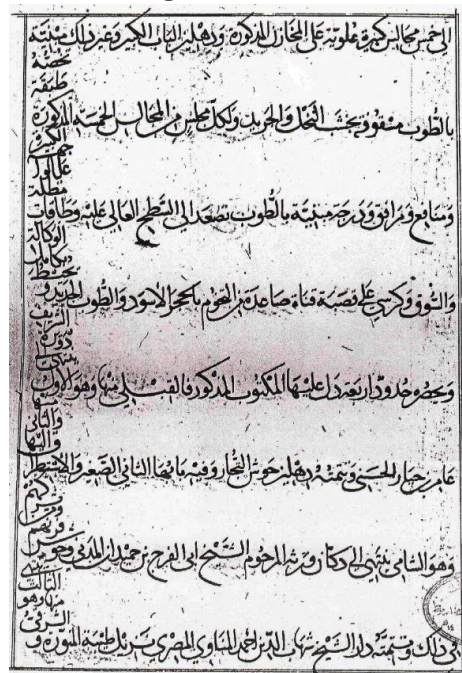 الى خمس مجالس كبيرة علوية على المخازن المذكورة ودهليز الباب الكبير وغير ذلك مبنية
بالطوب مسقوفة بخشب النخل والجريد ولكل مجلس من المجالس الخمسة المذكورة
ومنافع ومرافق ودرجة مبنية بالطوب تصعد الى السطح العالي عليه وطاقات
والسوق وكرسي على قصبة قناة صاعدة من التخوم بالحجر الاسود والطوب الجديد و
ويحصره حدود اربعة دل عليها المكتوب المذكور فالقبلي منها وهو الاول
عامر بن حيار الحسني وتتمته دهليز حوش التجار وفيه بابها الثاني الصغير والاسطبل
وهو الشامي ينتهي الى دكان ورثة المرحوم الشيخ ابي الفرج بن حميدان المدني
في ذلك وتتمته دار الشيخ شهاب الدين احمد المناوي المصري نزيل طيبة المنورة و
طبقة
الكبرى
مطلة
الوكالة
بكاملها
ينتهي
والثاني
الثالث
منها وهو
الشرقي